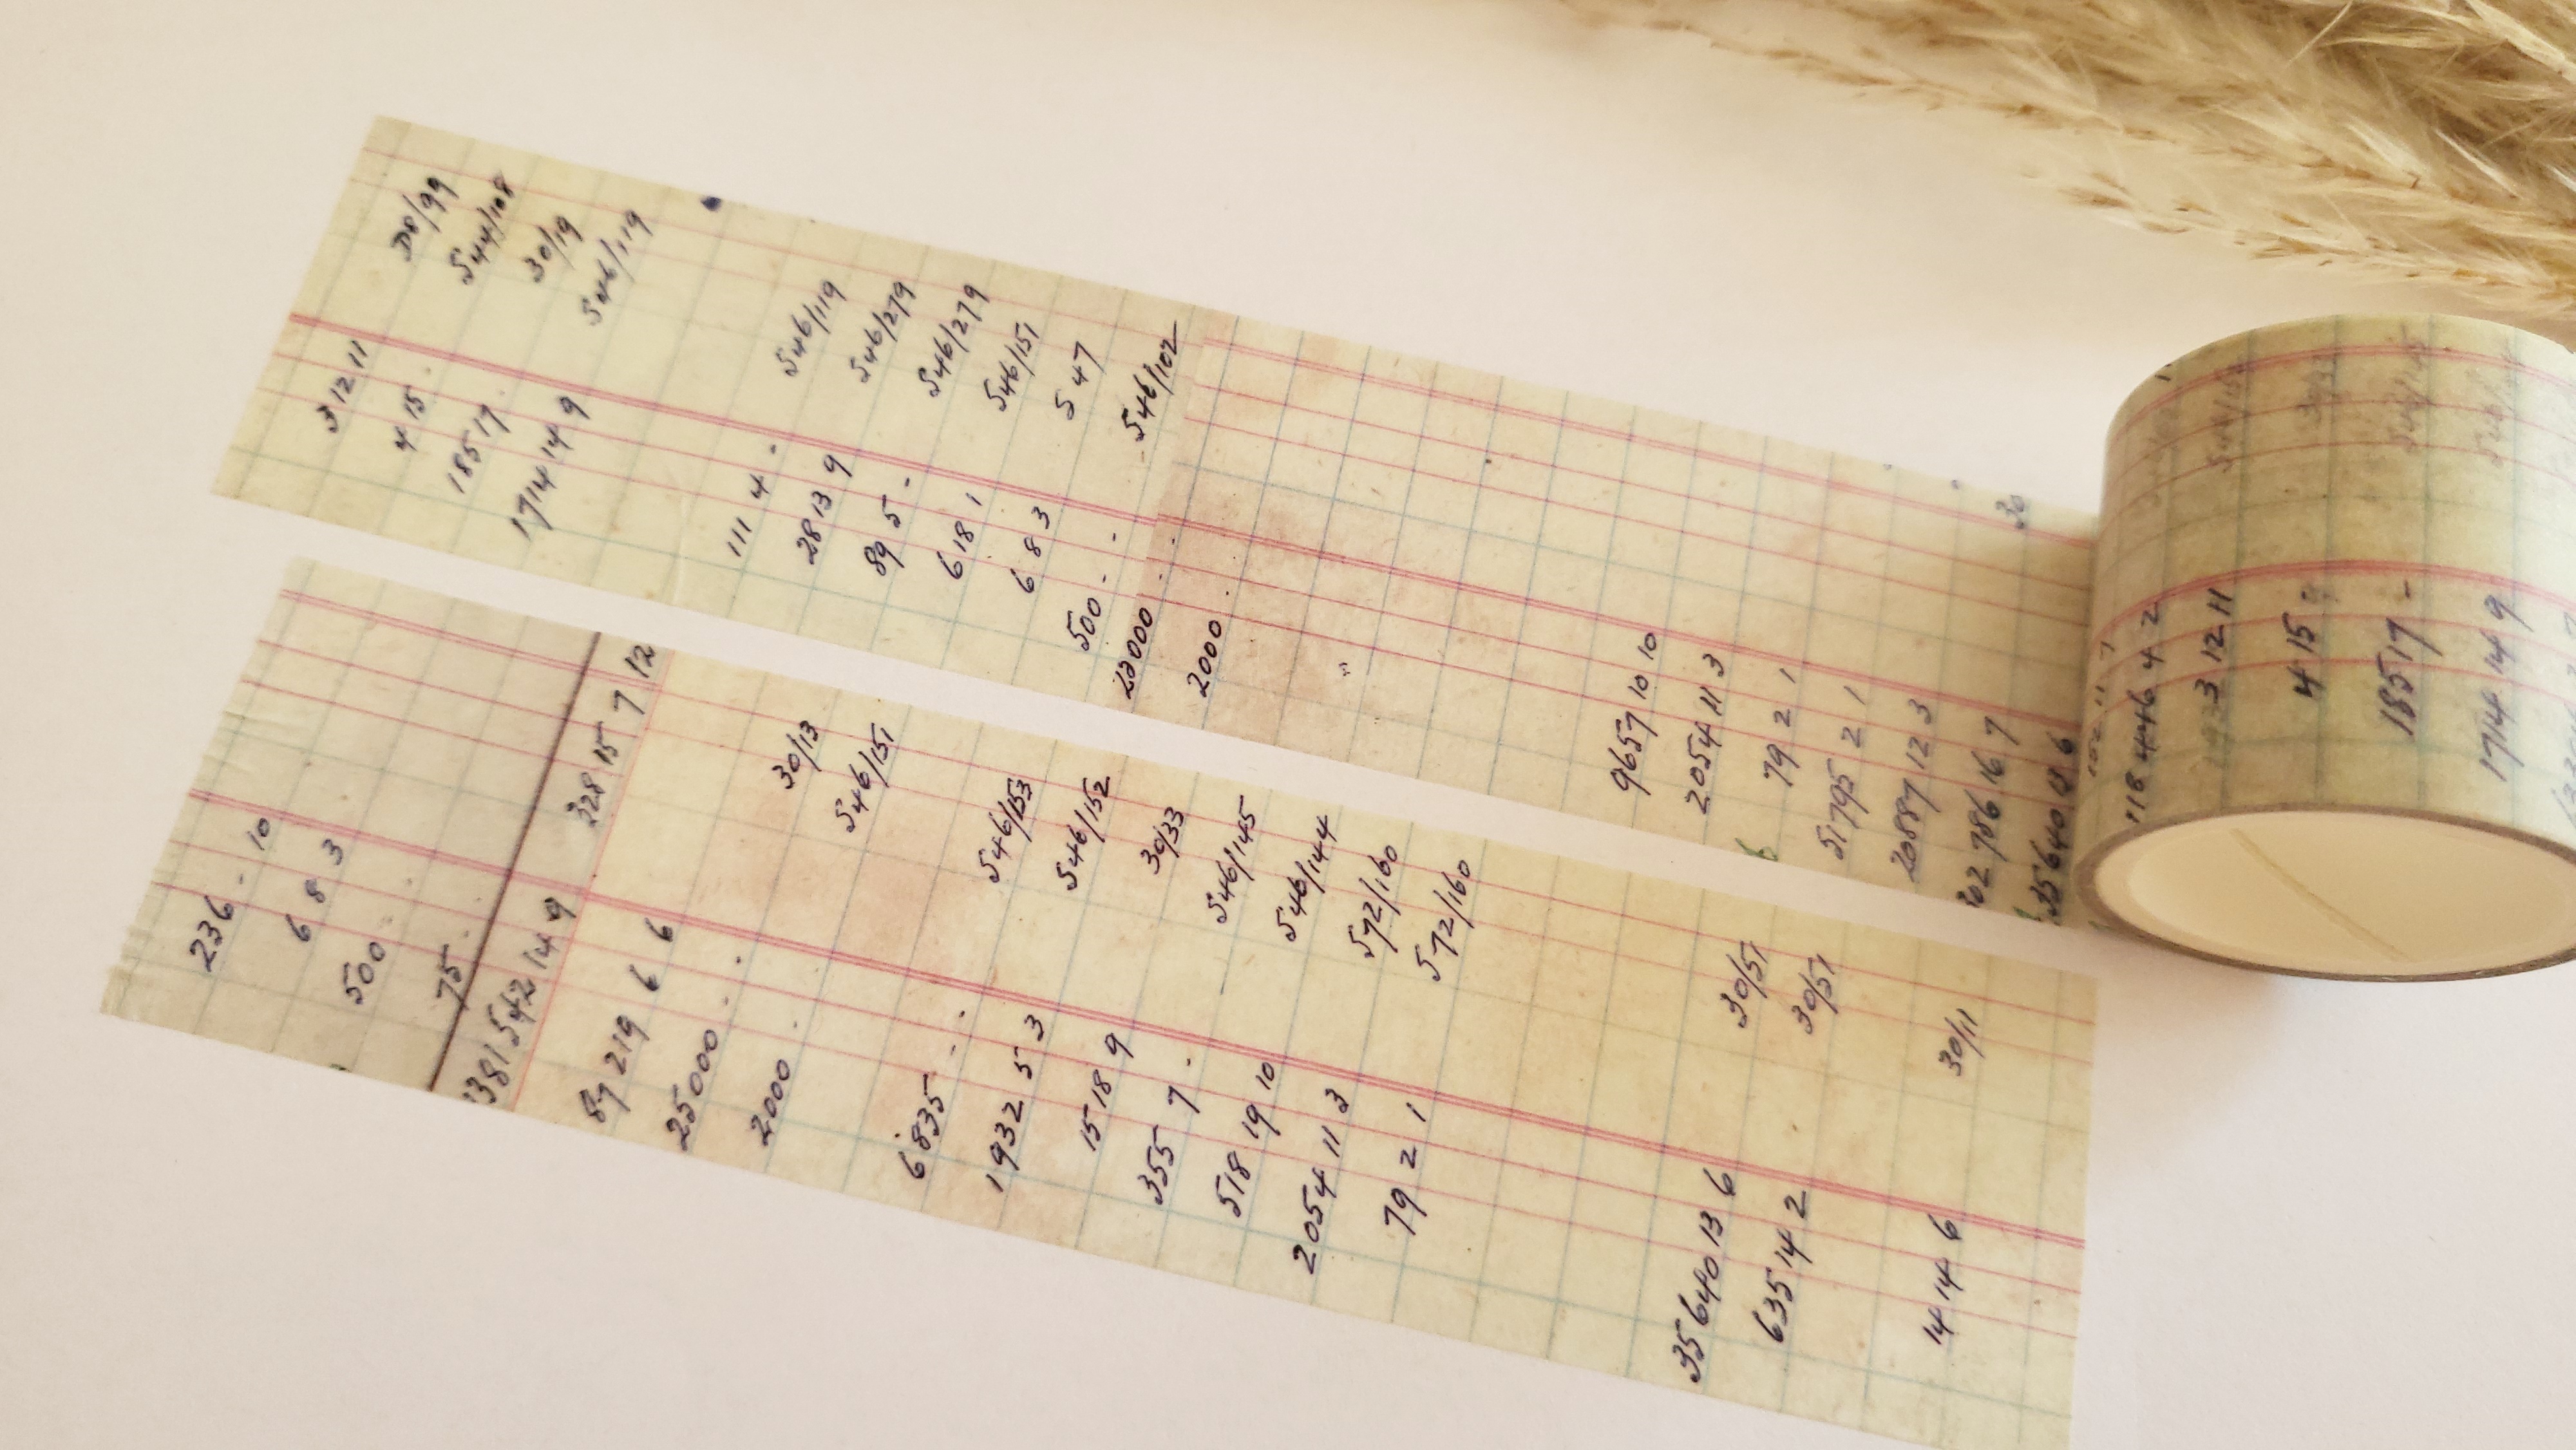 3 12 11
4 15 . D8/99
185 17 . 544/108
1714 14 9 30/19
546/119
111 4 -
28 13 9 546/119
89 5 - 546/279
6 18 1 546/279
6 8 3 546/151
500 - - 547
22000 . . 546/102
2000 .
9657 10 10
2054 11 3
79 2 1
51795 2 1
20887 12 3
786 16 7
30
236 - 10
6 8 3
500 .
75 .
381542 14 9 328 15 7 12
89219 6 6
25000 . .
2000 . 30/13
546/151
6835 - .
1932 5 3 546/153
15 18 9 546/152
355 7 - 30/33
518 19 10 546/145
2054 11 3 546/144
79 2 1 572/160
572/160
35640 13 6
635 14 2 30/51
30/51
14 14 6
30/11
118 446 4 2
3 12 11
4 15
185 17 -
1714 14 9